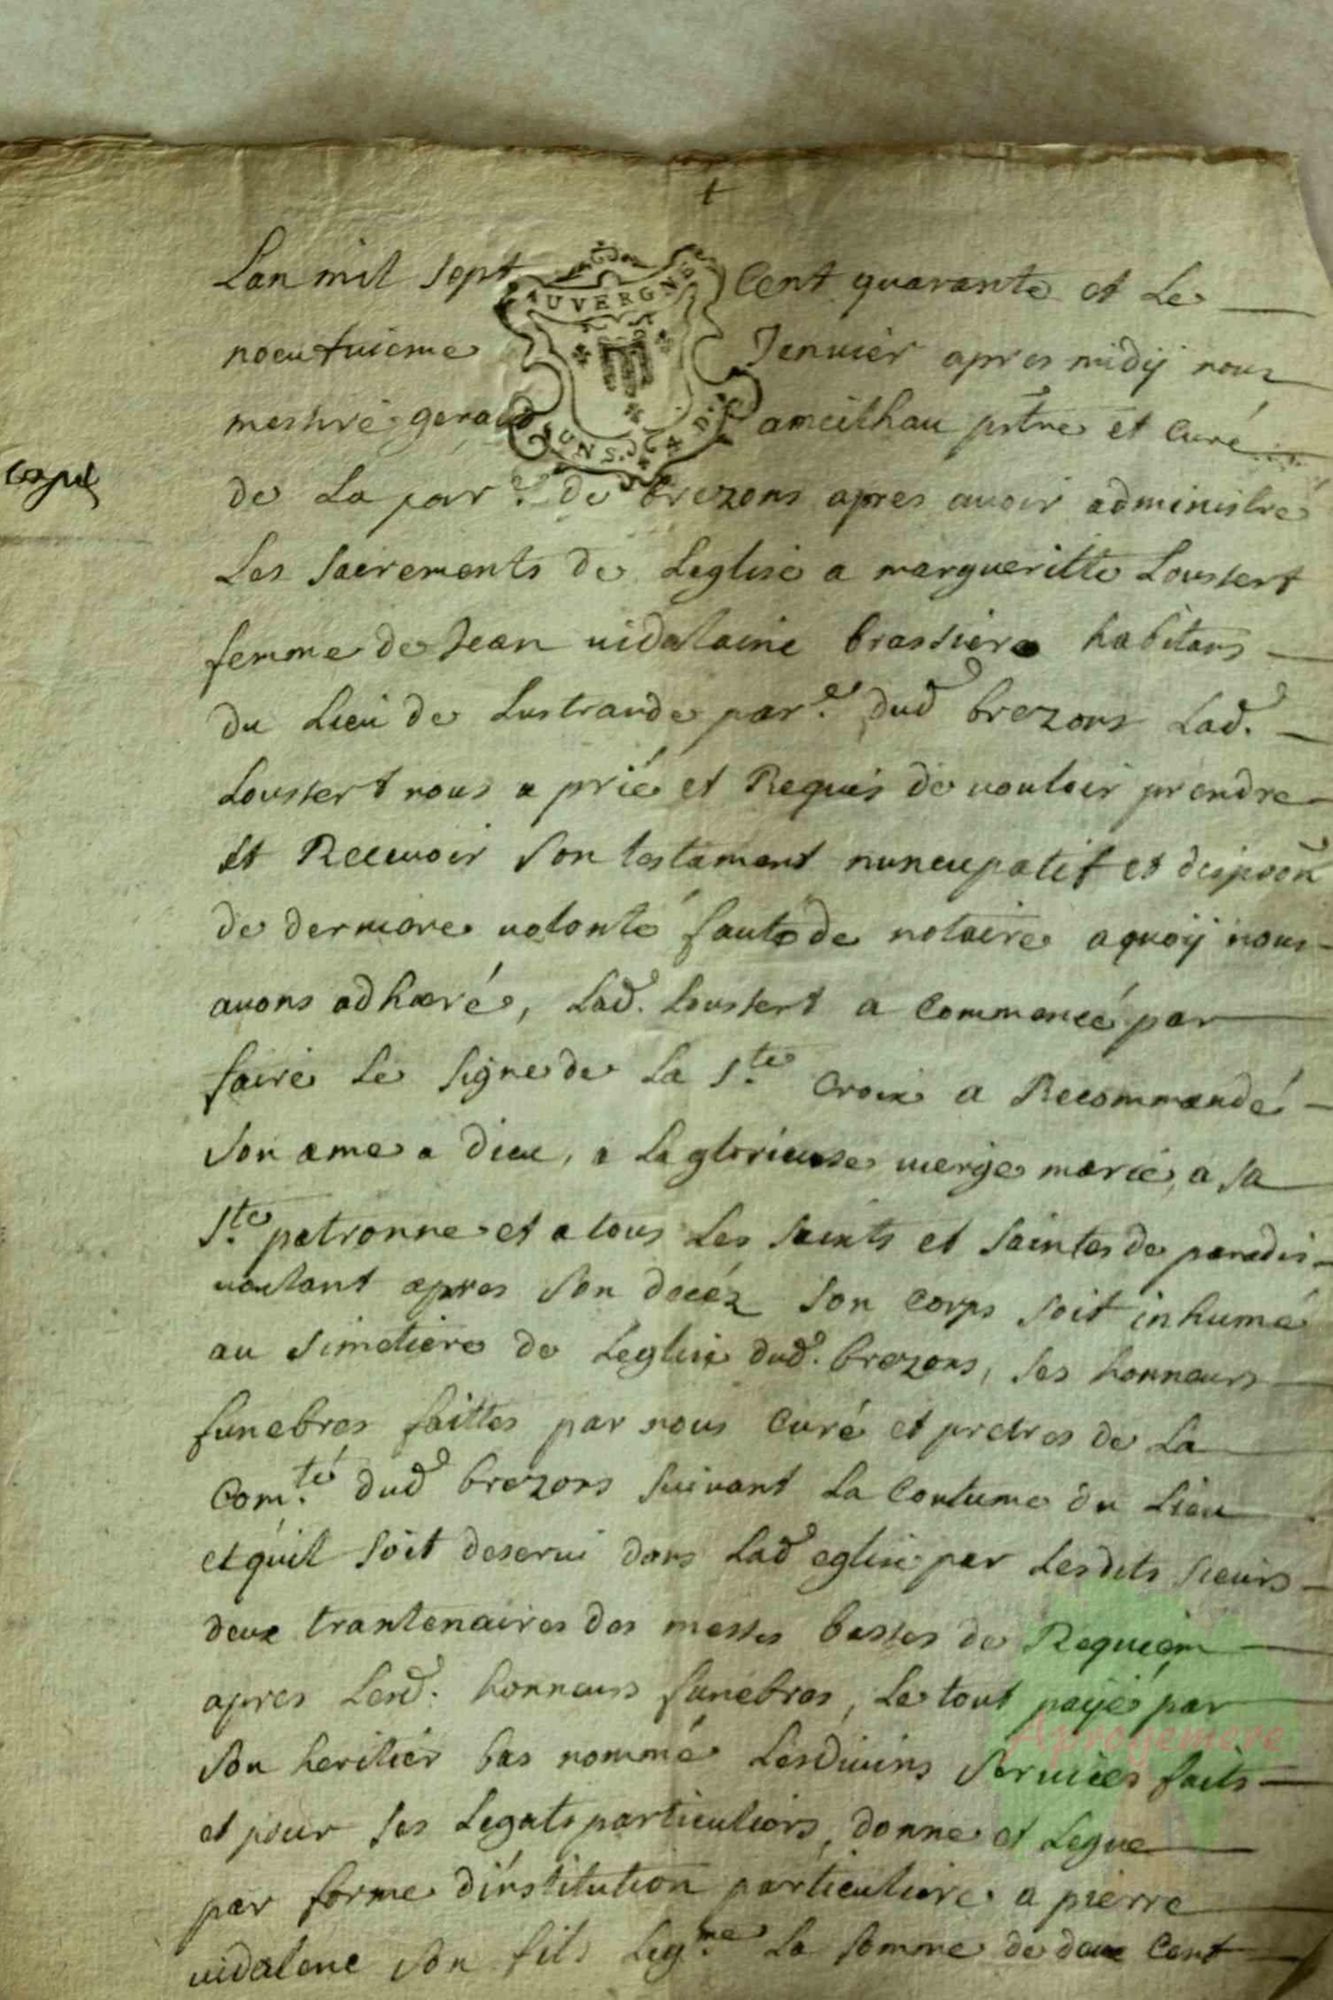 +
Lan mil sept Cent quarante et Le
AUVERGNE
noeufuieme Jenuier apres midy nous
messire gerald ameilhau pstre et Curé
UNS. 4 D.
de La par.e de brezons apres auoir administré
expé
Les sacrements de Leglise a margueritte Loussert
femme de Jean uidalaine brassiere habitans
du Lieu de Lustrande par.e dud brezons Lad.
Loussert nous a prié et Requis de uouloir prendre
et Receuoir son testament nuncupatif et disposon
de derniere uolonté faute de notaire a quoy nous
auons adhæré, Lad. Loussert a Commencé par
faire Le signe de La S.te Croix a Recommandé
son ame a dieu, a La glorieuse uierge marie, a sa
S.te patronne et a tous Les saints et saintes de paradis
uoulant apres son decéz son corps soit inhumé
au simetiere de Léglise dud. brezons, ses honneurs
funebres faittes par nous Curé et pretres de La
Com.té dud brezons suiuant La Coutume du Lieu
et quil soit deserui dans Lad eglise par Lesdits sieurs
deux trantenaires des messes basses de Requiem
apres Lesd. honneurs funebres, Le tout payé par
son heritier bas nommé Lesdiuins seruices faits
et pour ses Legats particuliers, donne et Legue
par forme dinstitution particuliere a pierre
uidalene son fils Leg.me La somme de deux Cent
Aprogemere